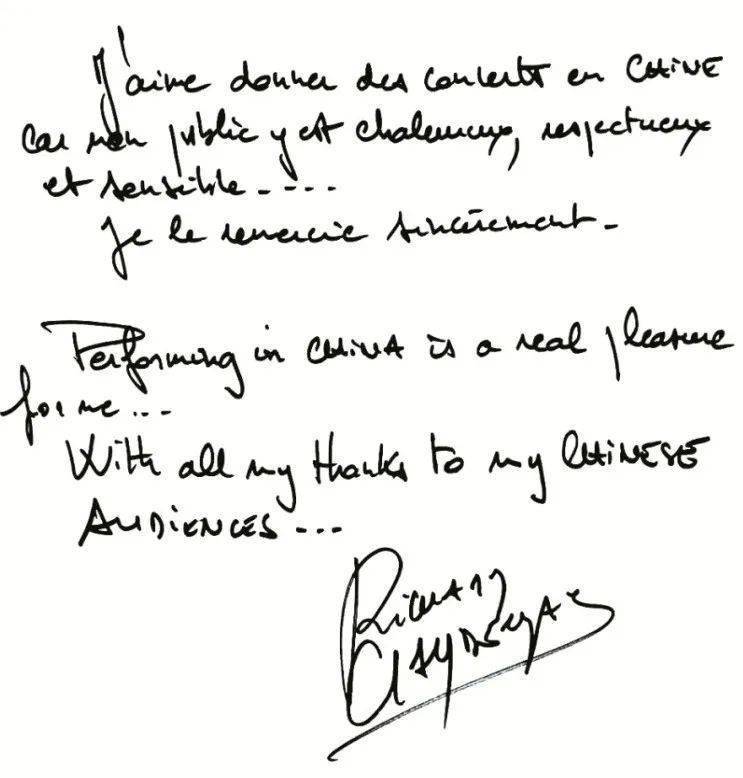 J'aime donner des concerts en CHINE
car mon public y est chaleureux, respectueux
et sensible - - - -
Je le remercie sincèrement -
Performing in CHINA is a real pleasure
for me ...
With all my thanks to my CHINESE
AUDIENCES ---
Richard
Clayderman